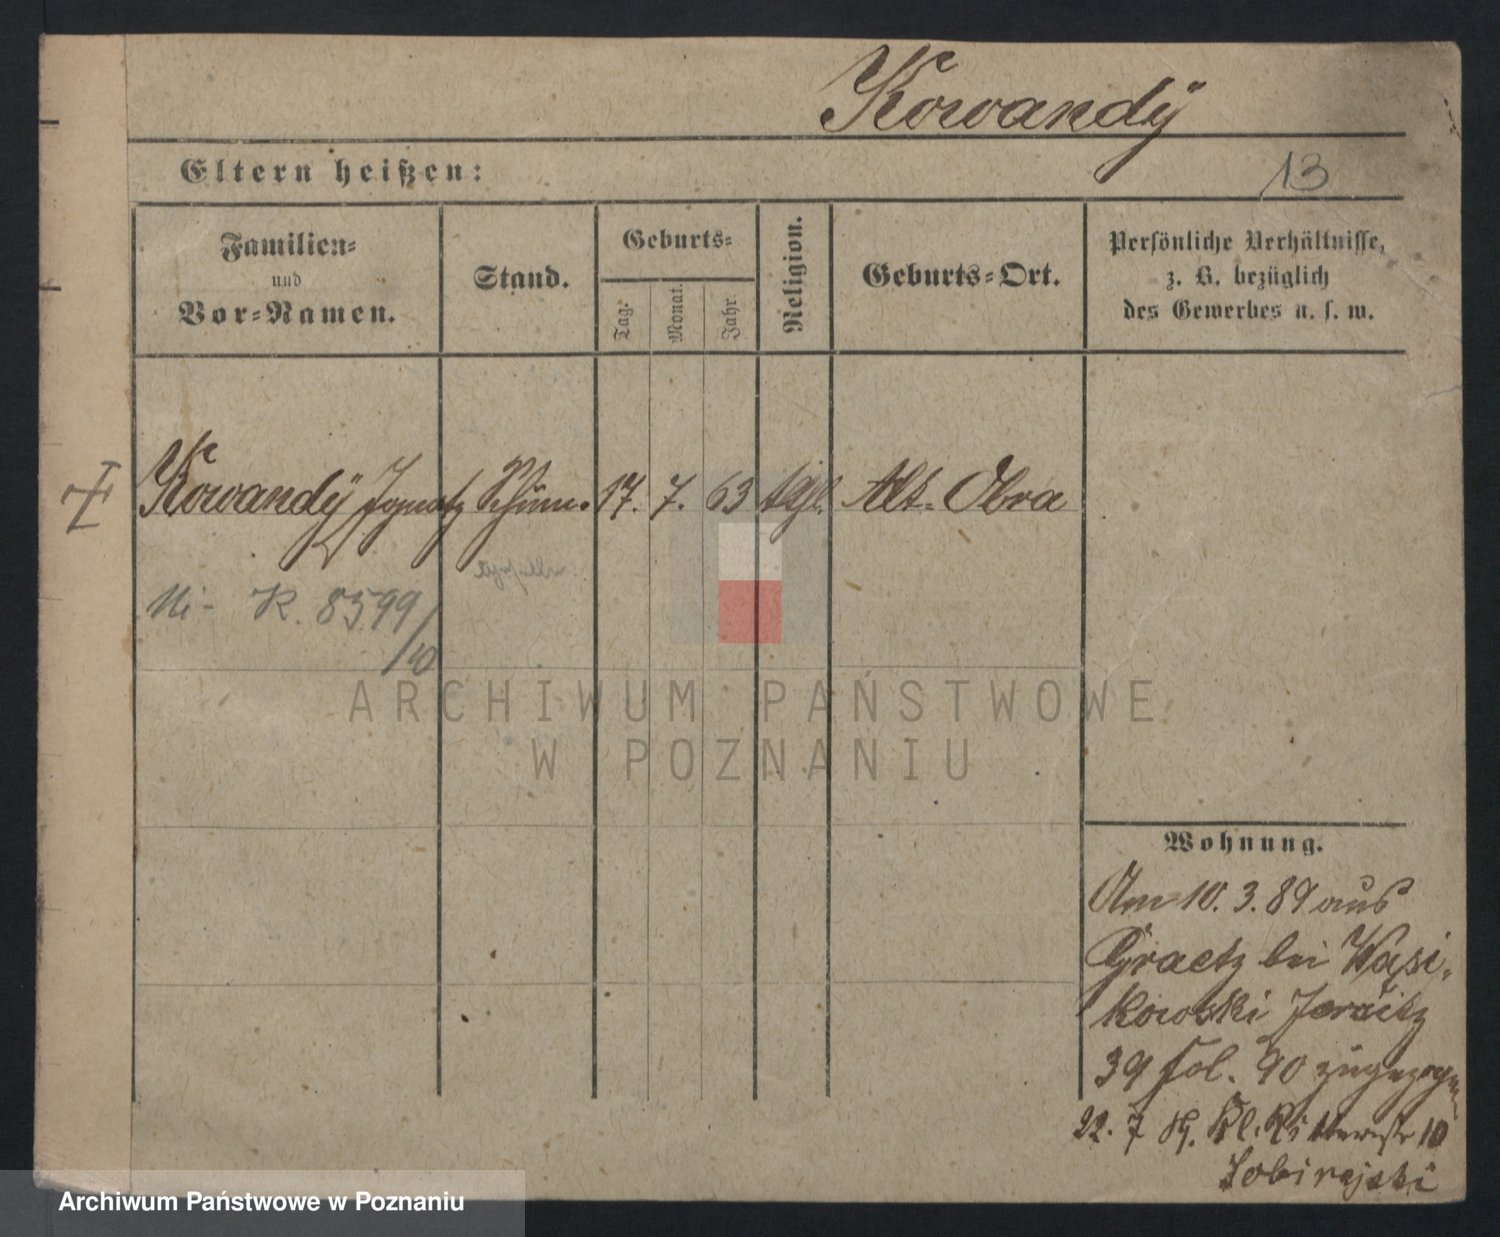 Kowandÿ
Eltern heißen:
13
Familien=
und
Vor=Namen.
Stand.
Geburts=
Tag.
Monat.
Jahr
Religion.
Geburts=Ort.
Persönliche Verhältnisse,
z. B. bezüglich
des Gewerbes u. s. w.
Kowandÿ Ignatz Schum. 17. 7. 63 kath. Alt-Obra
K. 8599/10
ARCHIWUM PAŃSTWOWE
W POZNANIU
Wohnung.
Am 10. 3. 89 aus
Graetz bei
kowski Jersitz
39 Fol. 90 zugezogen
22. 7 89. Kl. Ritterstr 10
Archiwum Państwowe w Poznaniu